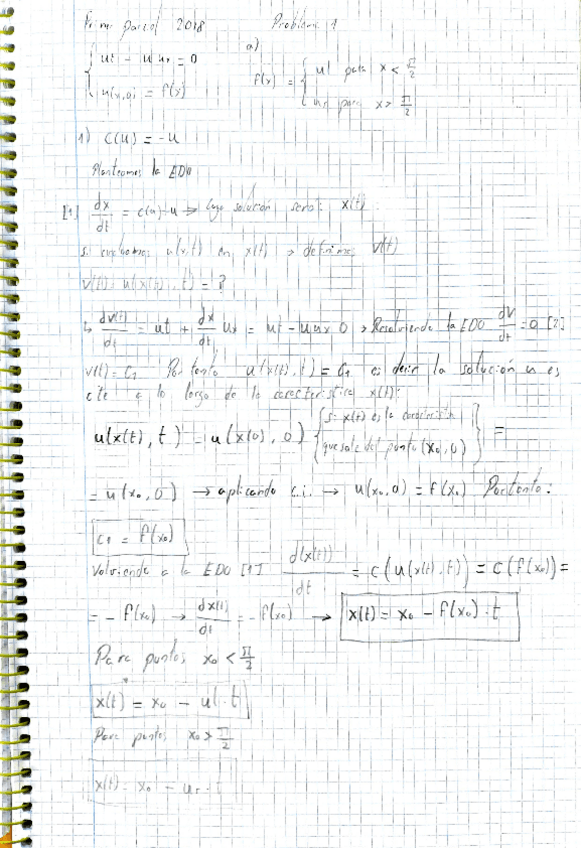 Primer parcial 2018 Problema 1
{ ut - u ux = 0
u(x,0) = f(x)
a)
f(x) = { ul para x < π/2
ur para x > π/2
1) c(u) = -u
Planteamos la EDO
[1] dx/dt = c(u) = -u → cuya solución será: x(t)
si evaluamos u(x,t) en x(t) → definimos v(t)
v(t) = u(x(t), t) = ?
↳ dv(t)/dt = ut + dx/dt ux = ut - u ux = 0 → Resolviendo la EDO dv/dt = 0 [2]
v(t) = C1 Por tanto u(x(t), t) = C1 es decir la solución u es
cte a lo largo de la característica x(t):
u(x(t), t) = u(x(0), 0) { si x(t) es la característica
que sale del punto (x0, 0) } =
= u(x0, 0) → aplicando c.i. → u(x0, 0) = f(x0) Por tanto:
c1 = f(x0)
Volviendo a la EDO [1] d(x(t))/dt = c(u(x(t), t)) = c(f(x0)) =
= - f(x0) → dx(t)/dt = - f(x0) → x(t) = x0 - f(x0) · t
Para puntos x0 < π/2
x(t) = x0 - ul · t
Para puntos x0 > π/2
x(t) = x0 - ur · t